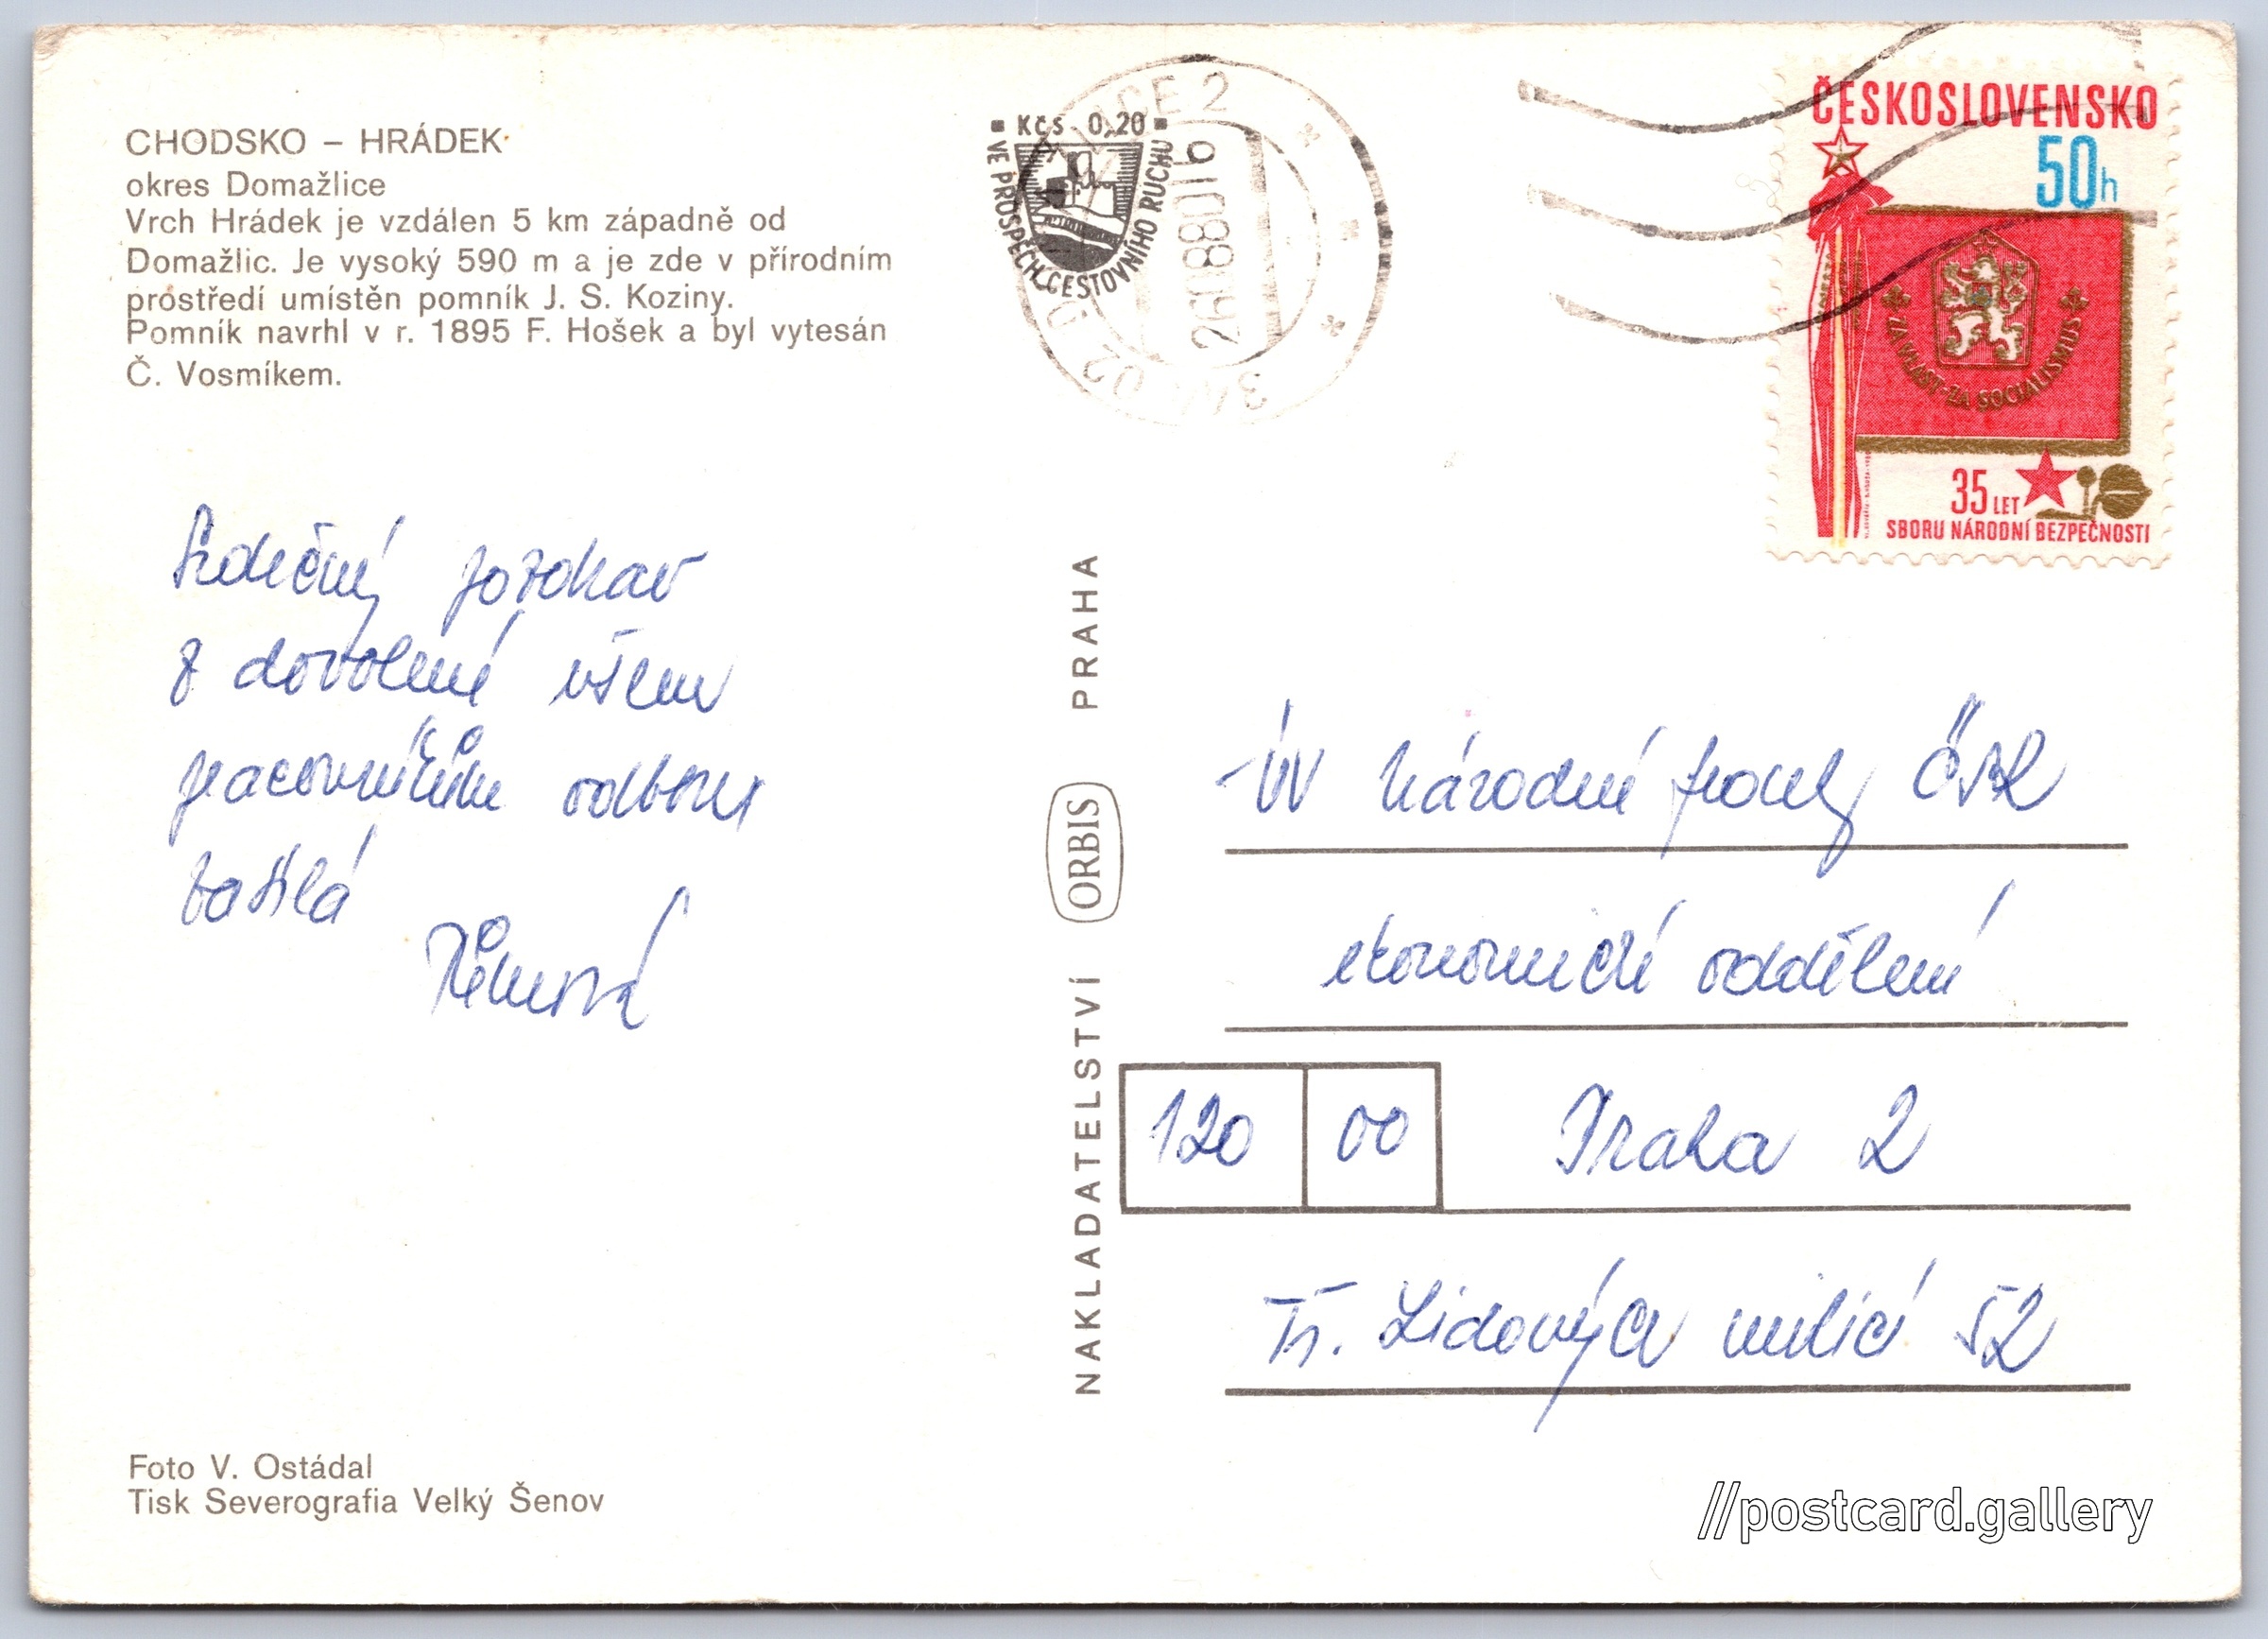 CHODSKO – HRÁDEK
okres Domažlice
Vrch Hrádek je vzdálen 5 km západně od
Domažlic. Je vysoký 590 m a je zde v přírodním
prostředí umístěn pomník J. S. Koziny.
Pomník navrhl v r. 1895 F. Hošek a byl vytesán
Č. Vosmíkem.
Kčs 0,20
VE PROSPĚCH CESTOVNÍHO RUCHU
ČESKOSLOVENSKO
50h
ZA VLAST-ZA SOCIALISMUS
35 LET
SBORU NÁRODNÍ BEZPEČNOSTI
Srdečný pozdrav
z dovolené všem
pracovníkům odboru
zasílá
NAKLADATELSTVÍ ORBIS PRAHA
ÚV Národní fronty ČSR
ekonomické oddělení
120 00 Praha 2
Tř. Lidových milicí 52
Foto V. Ostádal
Tisk Severografia Velký Šenov
//postcard.gallery